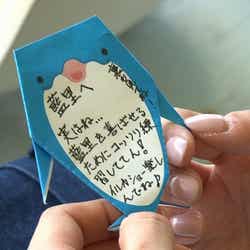 藍里へ
実はね…
藍里を喜ばせる
ためにコッソリ練
習しててん!
イルカショー楽し
んでね♪